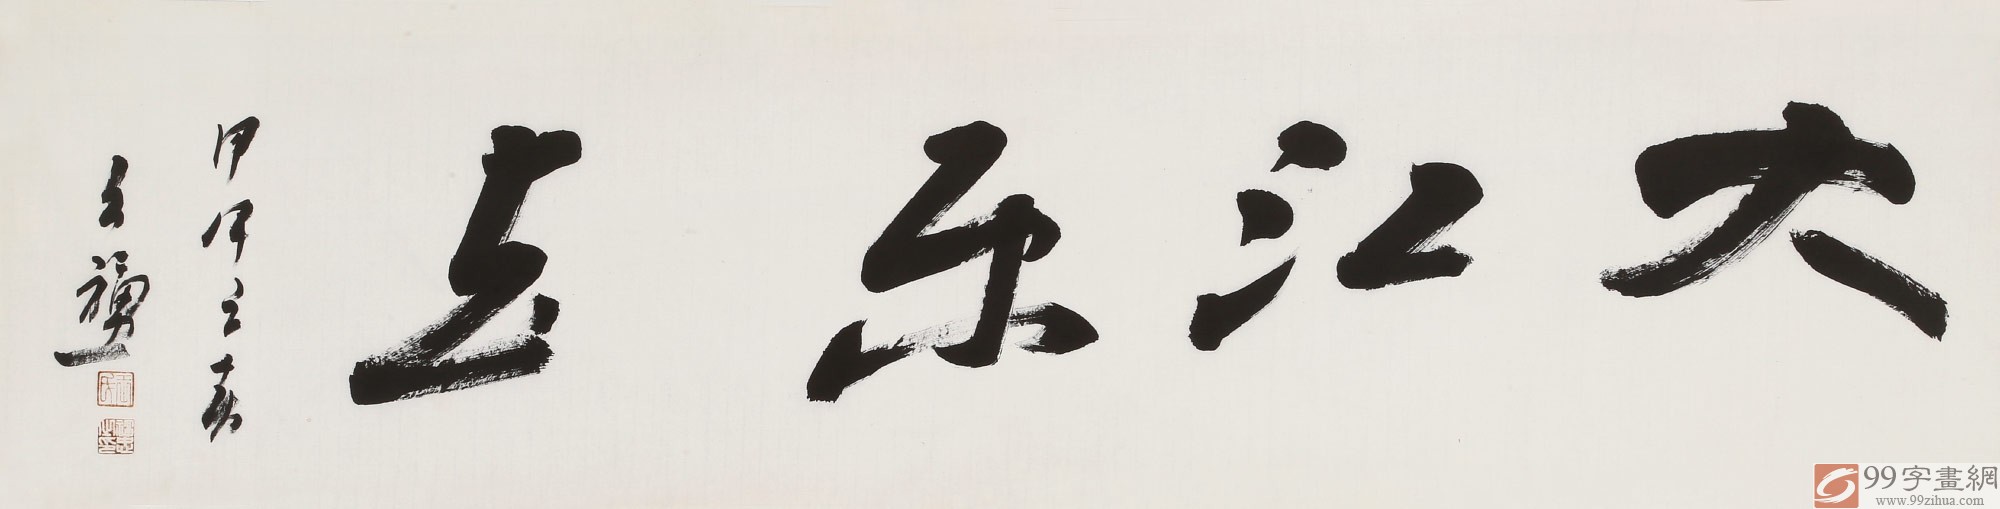 大江东去
甲午之春
99字畫網
www.99zihua.com